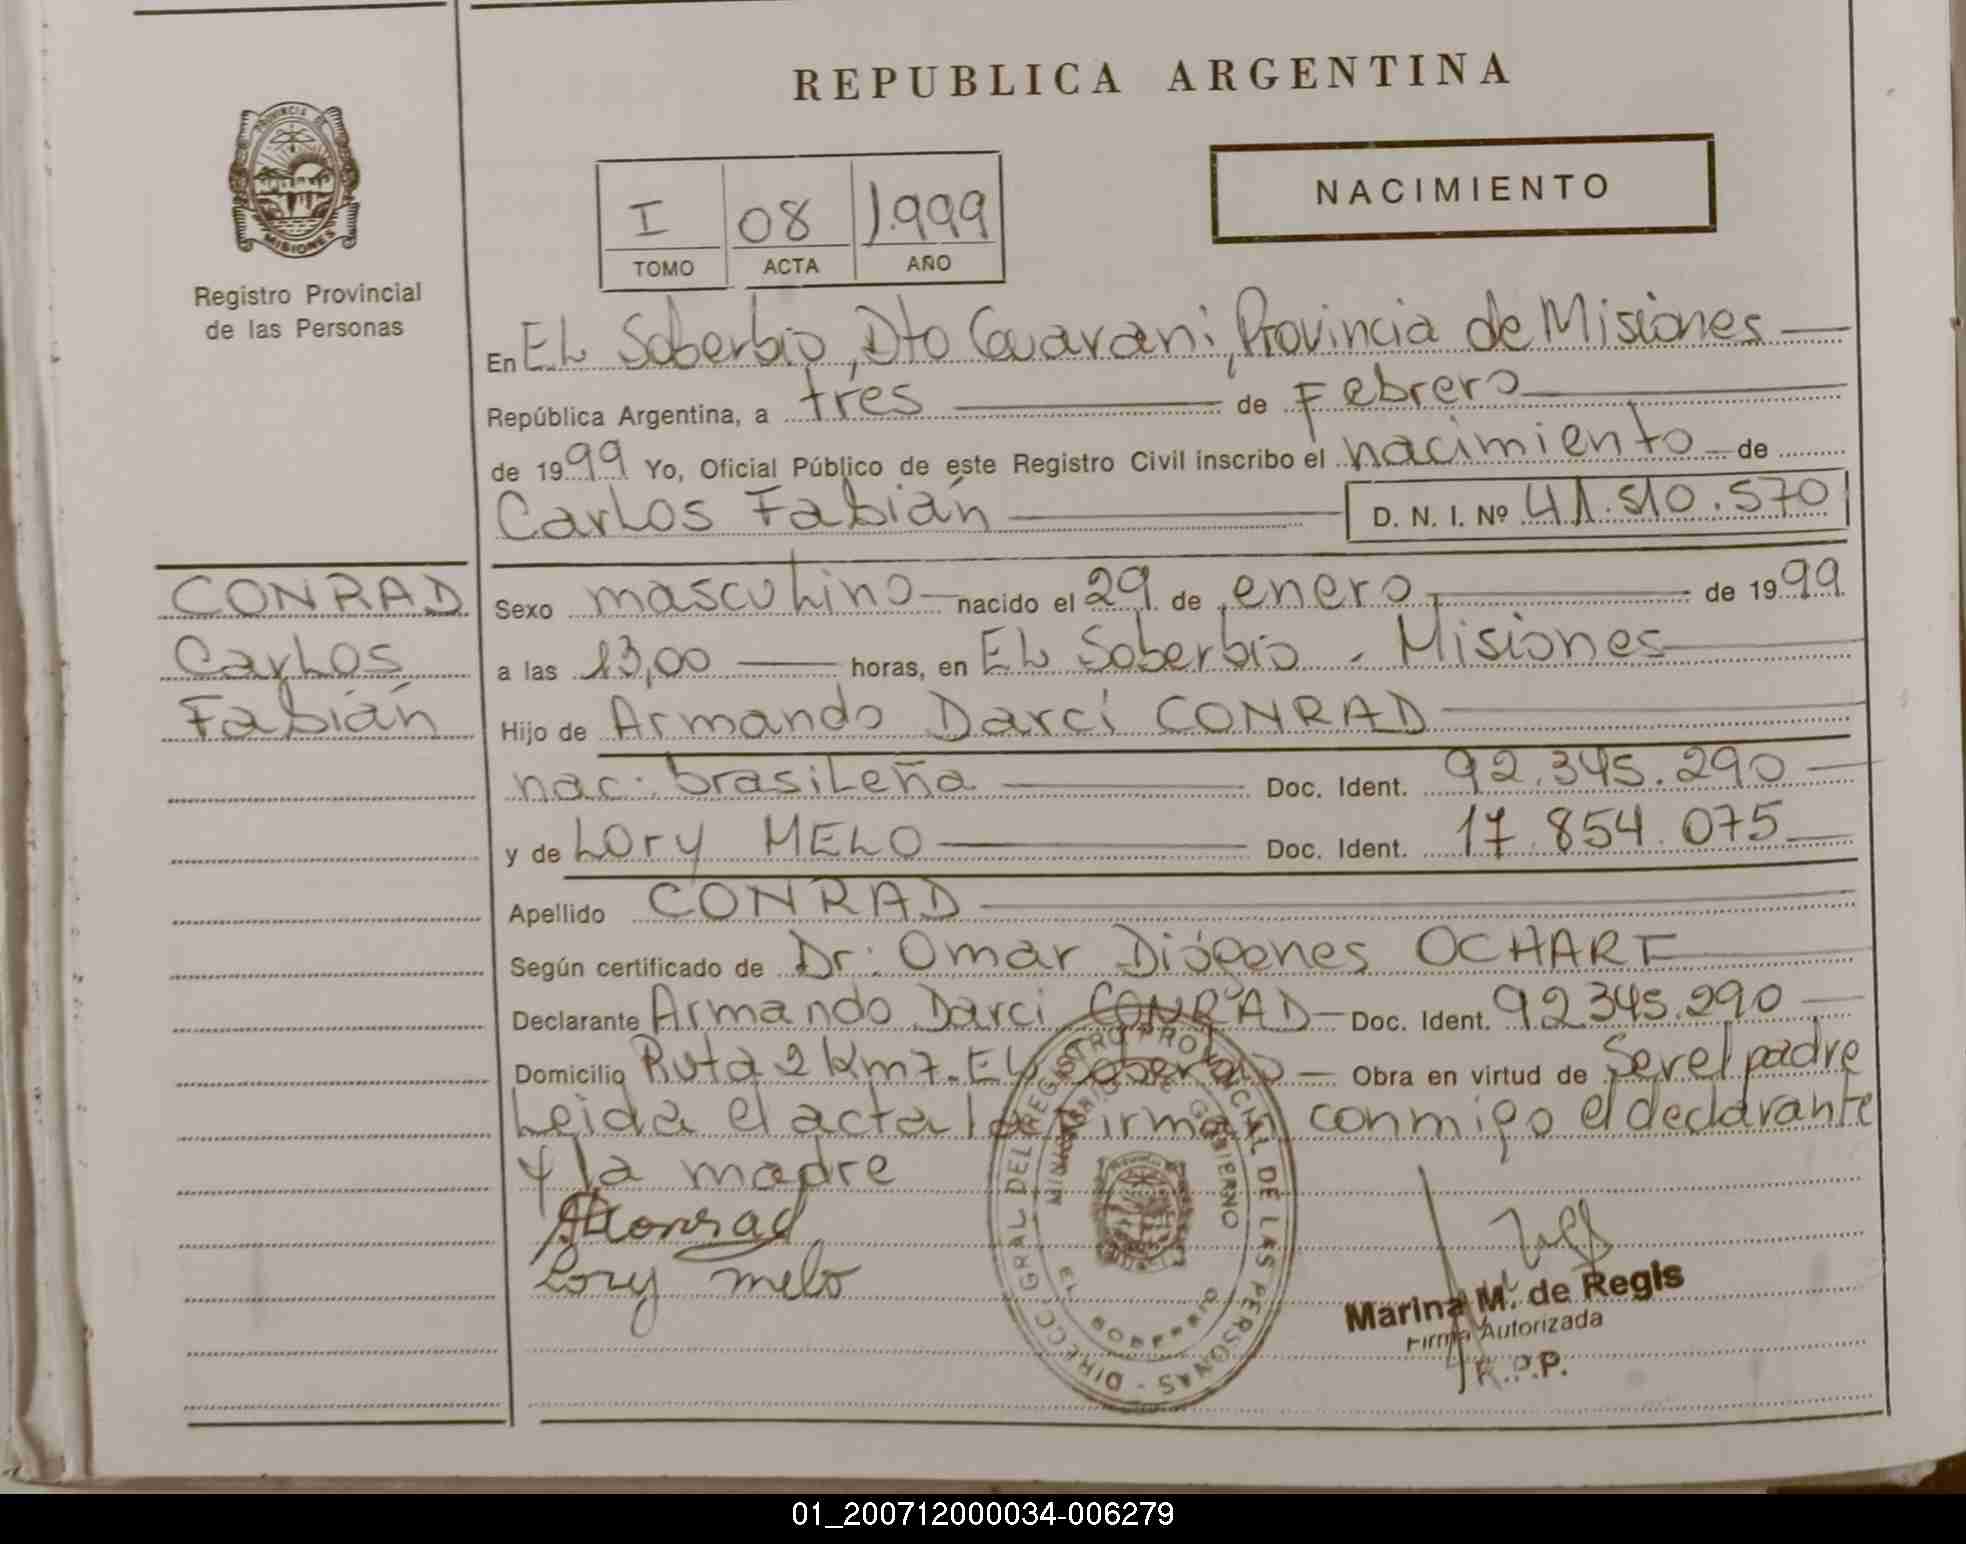 REPUBLICA ARGENTINA
PROVINCIA DE
MISIONES
Registro Provincial
de las Personas
NACIMIENTO
I 08 1.999
TOMO ACTA AÑO
En EL Soberbio, Dto Guarani, Provincia de Misiones
República Argentina, a tres de Febrero
de 1999 Yo, Oficial Público de este Registro Civil inscribo el nacimiento de
Carlos Fabián D. N. I. Nº 41.510.570
CONRAD
Carlos
Fabián
Sexo masculino nacido el 29 de enero de 1999
a las 13,00 horas, en EL Soberbio - Misiones
Hijo de Armando Darci CONRAD
nac. brasileña Doc. Ident. 92.345.290
y de Lory MELO Doc. Ident. 17.854.075
Apellido CONRAD
Según certificado de Dr. Omar Diógenes OCHART
Declarante Armando Darci CONRAD Doc. Ident. 92.345.290
Domicilio Ruta 2 Km 7. EL Soberbio Obra en virtud de Ser el padre
Leida el acta la firman conmigo el declarante
y la madre
Lory melo
DIRECC. GRAL DEL REGISTRO PROVINCIAL DE LAS PERSONAS
MINISTERIO DE GOBIERNO
EL SOBERBIO
Marina M. de Regis
Firma Autorizada
R.P.P.
01_200712000034-006279